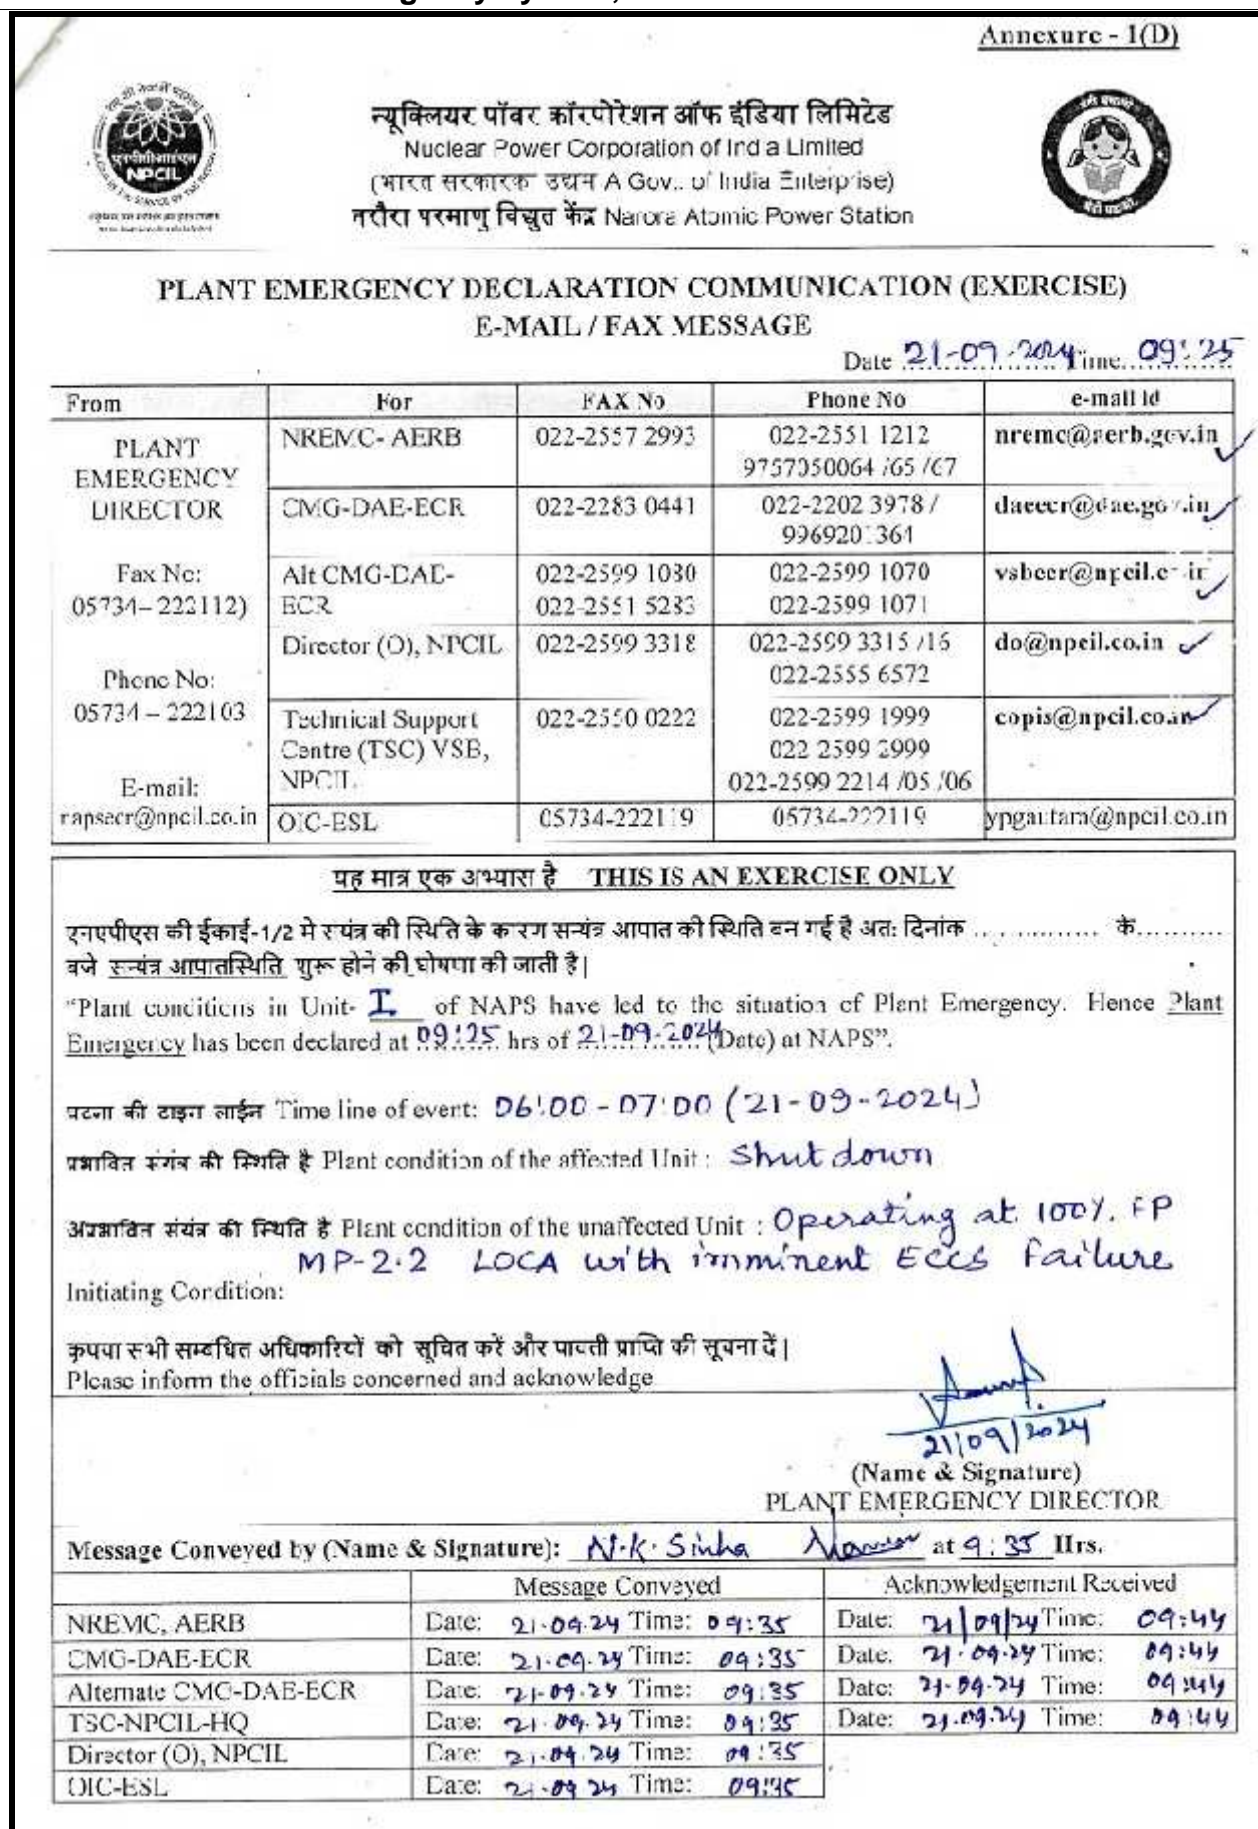 Annexure - 1(D)
एनपीसीआईएल
NPCIL
न्यूक्लियर पॉवर कॉरपोरेशन ऑफ इंडिया लिमिटेड
Nuclear Power Corporation of India Limited
(भारत सरकारक उद्यम A Gov.. of India Enterprise)
नरौरा परमाणु विद्युत केंद्र Narora Atomic Power Station
PLANT EMERGENCY DECLARATION COMMUNICATION (EXERCISE)
E-MAIL / FAX MESSAGE
Date 21-09-2024 Time 09:25
From For FAX No Phone No e-mail id
PLANT EMERGENCY DIRECTOR
Fax No: 05734– 222112)
Phone No: 05734 – 222103
E-mail: rapsecr@npcil.co.in
NREMC- AERB 022-2557 2993 022-2551 1212 nremc@aerb.gov.in
9757050064 /65 /67
CMG-DAE-ECR 022-2283 0441 022-2202 3978 / daeecr@dae.gov.in
9969201364
Alt CMG-DAE- 022-2599 1080 022-2599 1070
ECR 022-2551 5283 022-2599 1071
Director (O), NPCIL 022-2599 3318 022-2599 3315 /16 do@npcil.co.in
022-2555 6572
Technical Support 022-2550 0222 022-2599 1999 copis@npcil.co.in
Centre (TSC) VSB, 022 2599 2999
NPCIL 022-2599 2214 /05 /06
OIC-ESL 05734-222119 05734-222119 ypgautam@npcil.co.in
यह मात्र एक अभ्यास है THIS IS AN EXERCISE ONLY
एनएपीएस की ईकाई-1/2 मे सयंत्र की स्थिति के कारण सन्यंत्र आपात की स्थिति बन गई है अतः दिनांक .............. के..........
बजे सन्यंत्र आपातस्थिति शुरू होने की घोषणा की जाती है|
“Plant conditions in Unit- I of NAPS have led to the situation of Plant Emergency. Hence Plant
Emergency has been declared at 09:25 hrs of 21-09-2024 (Date) at NAPS”.
घटना की टाइन लाईन Time line of event: 06:00 - 07:00 (21-09-2024)
प्रभावित संयंत्र की स्थिति है Plant condition of the affected Unit : Shut down
अप्रभावित संयंत्र की स्थिति है Plant condition of the unaffected Unit : Operating at 100% FP
MP-2.2 LOCA with imminent ECCS Failure
Initiating Condition:
कृपया सभी सम्बधित अधिकारियों को सूचित करें और पावती प्राप्ति की सूचना दें|
Please inform the officials concerned and acknowledge
21/09/2024
(Name & Signature)
PLANT EMERGENCY DIRECTOR
Message Conveyed by (Name & Signature): N.K. Sinha at 9:35 Hrs.
Message Conveyed Acknowledgement Received
NREMC, AERB Date: 21.09.24 Time: 09:35 Date: 21/09/24 Time: 09:44
CMG-DAE-ECR Date: 21.09.24 Time: 09:35 Date: 21.09.24 Time: 09:44
Alternate CMG-DAE-ECR Date: 21-09-24 Time: 09:35 Date: 21-09-24 Time: 09:44
TSC-NPCIL-HQ Date: 21.09.24 Time: 09:35 Date: 21.09.24 Time: 09:44
Director (O), NPCIL Date: 21.09.24 Time: 09:35
OIC-ESL Date: 21.09.24 Time: 09:35